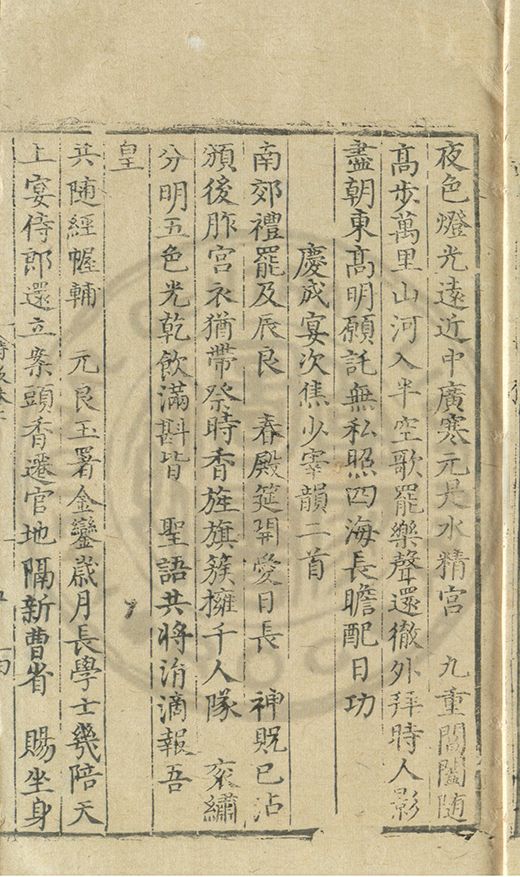 夜色燈光遠近中廣寒元是水精宮　九重閶闔随
高步萬里山河入半空歌罷樂聲還徹外拜時人影
盡朝東高明願託無私照四海長瞻配日功
慶成宴次焦少宰韻二首
南郊禮罷及辰良　春殿筵開愛日長　神貺已沾
頒後胙宮衣猶帶祭時香旌旗簇擁千人隊　衮繡
分明五色光乾飲滿斟皆　聖語共將涓滴報吾
皇
共随經幄輔　元良玉署金鑾歲月長學士幾陪天
上宴侍郎還立案頭香遷官地隔新曹省　賜坐身